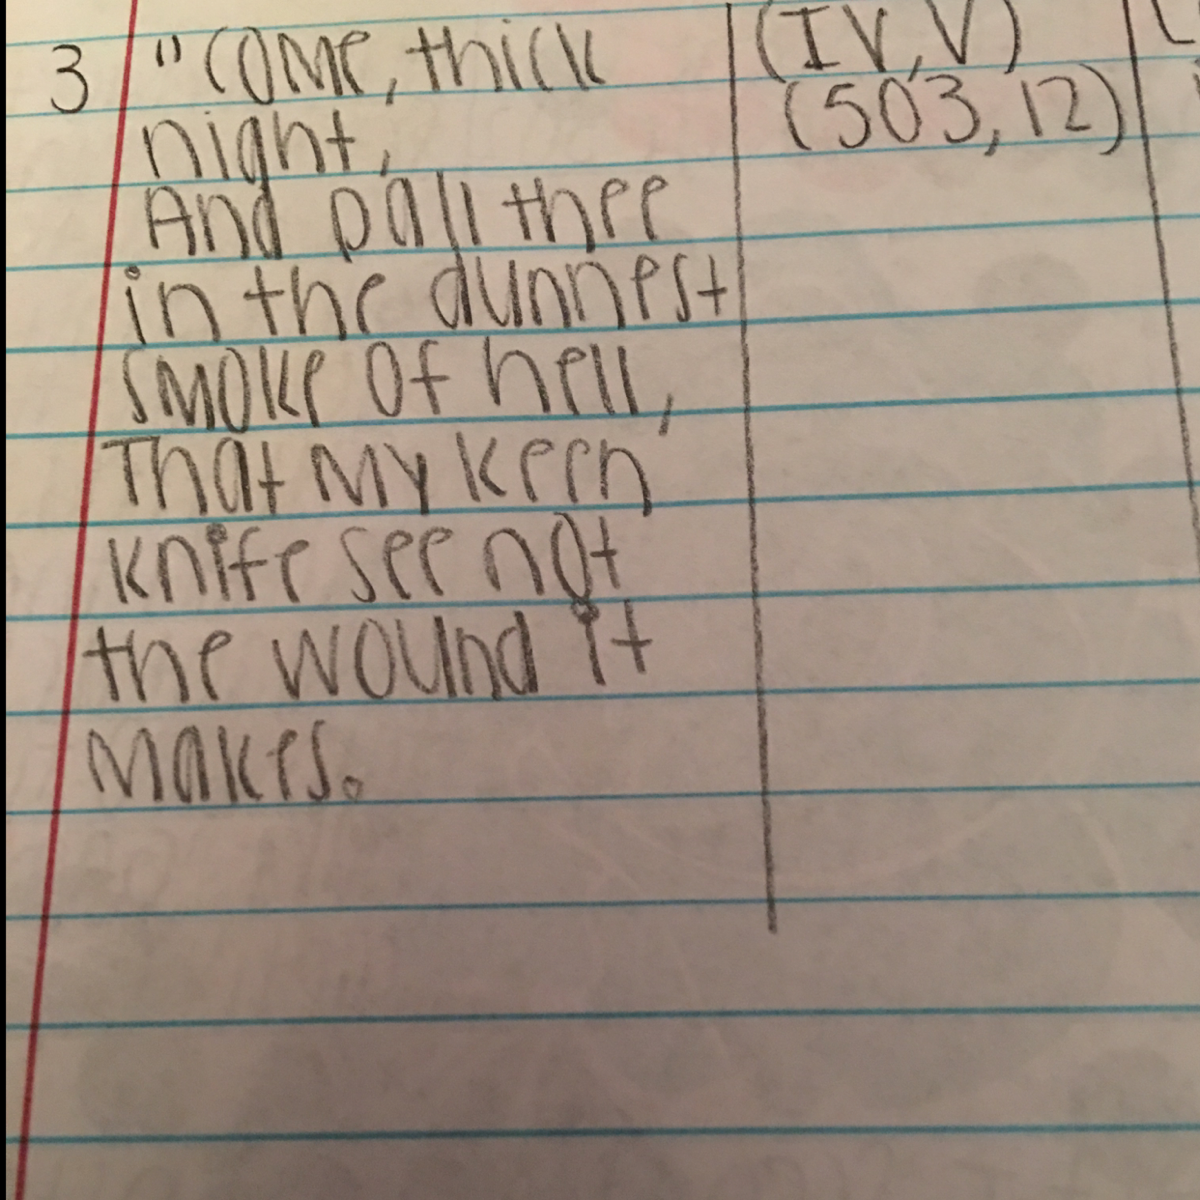 3 "Come, thick (IV, V)
night, (503, 12)
And pall thee
in the dunnest
smoke of hell,
That my keen
knife see not
the wound it
makes.